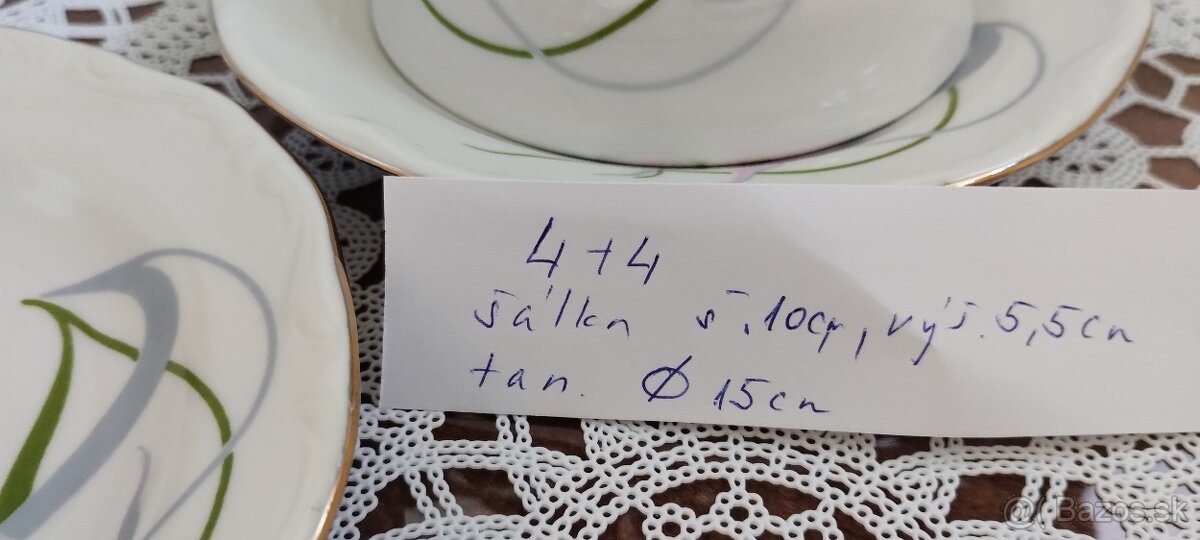 4+4
šálka š.10cm, výš. 5,5cm
tan. Ø 15cm
@( Bazos.sk